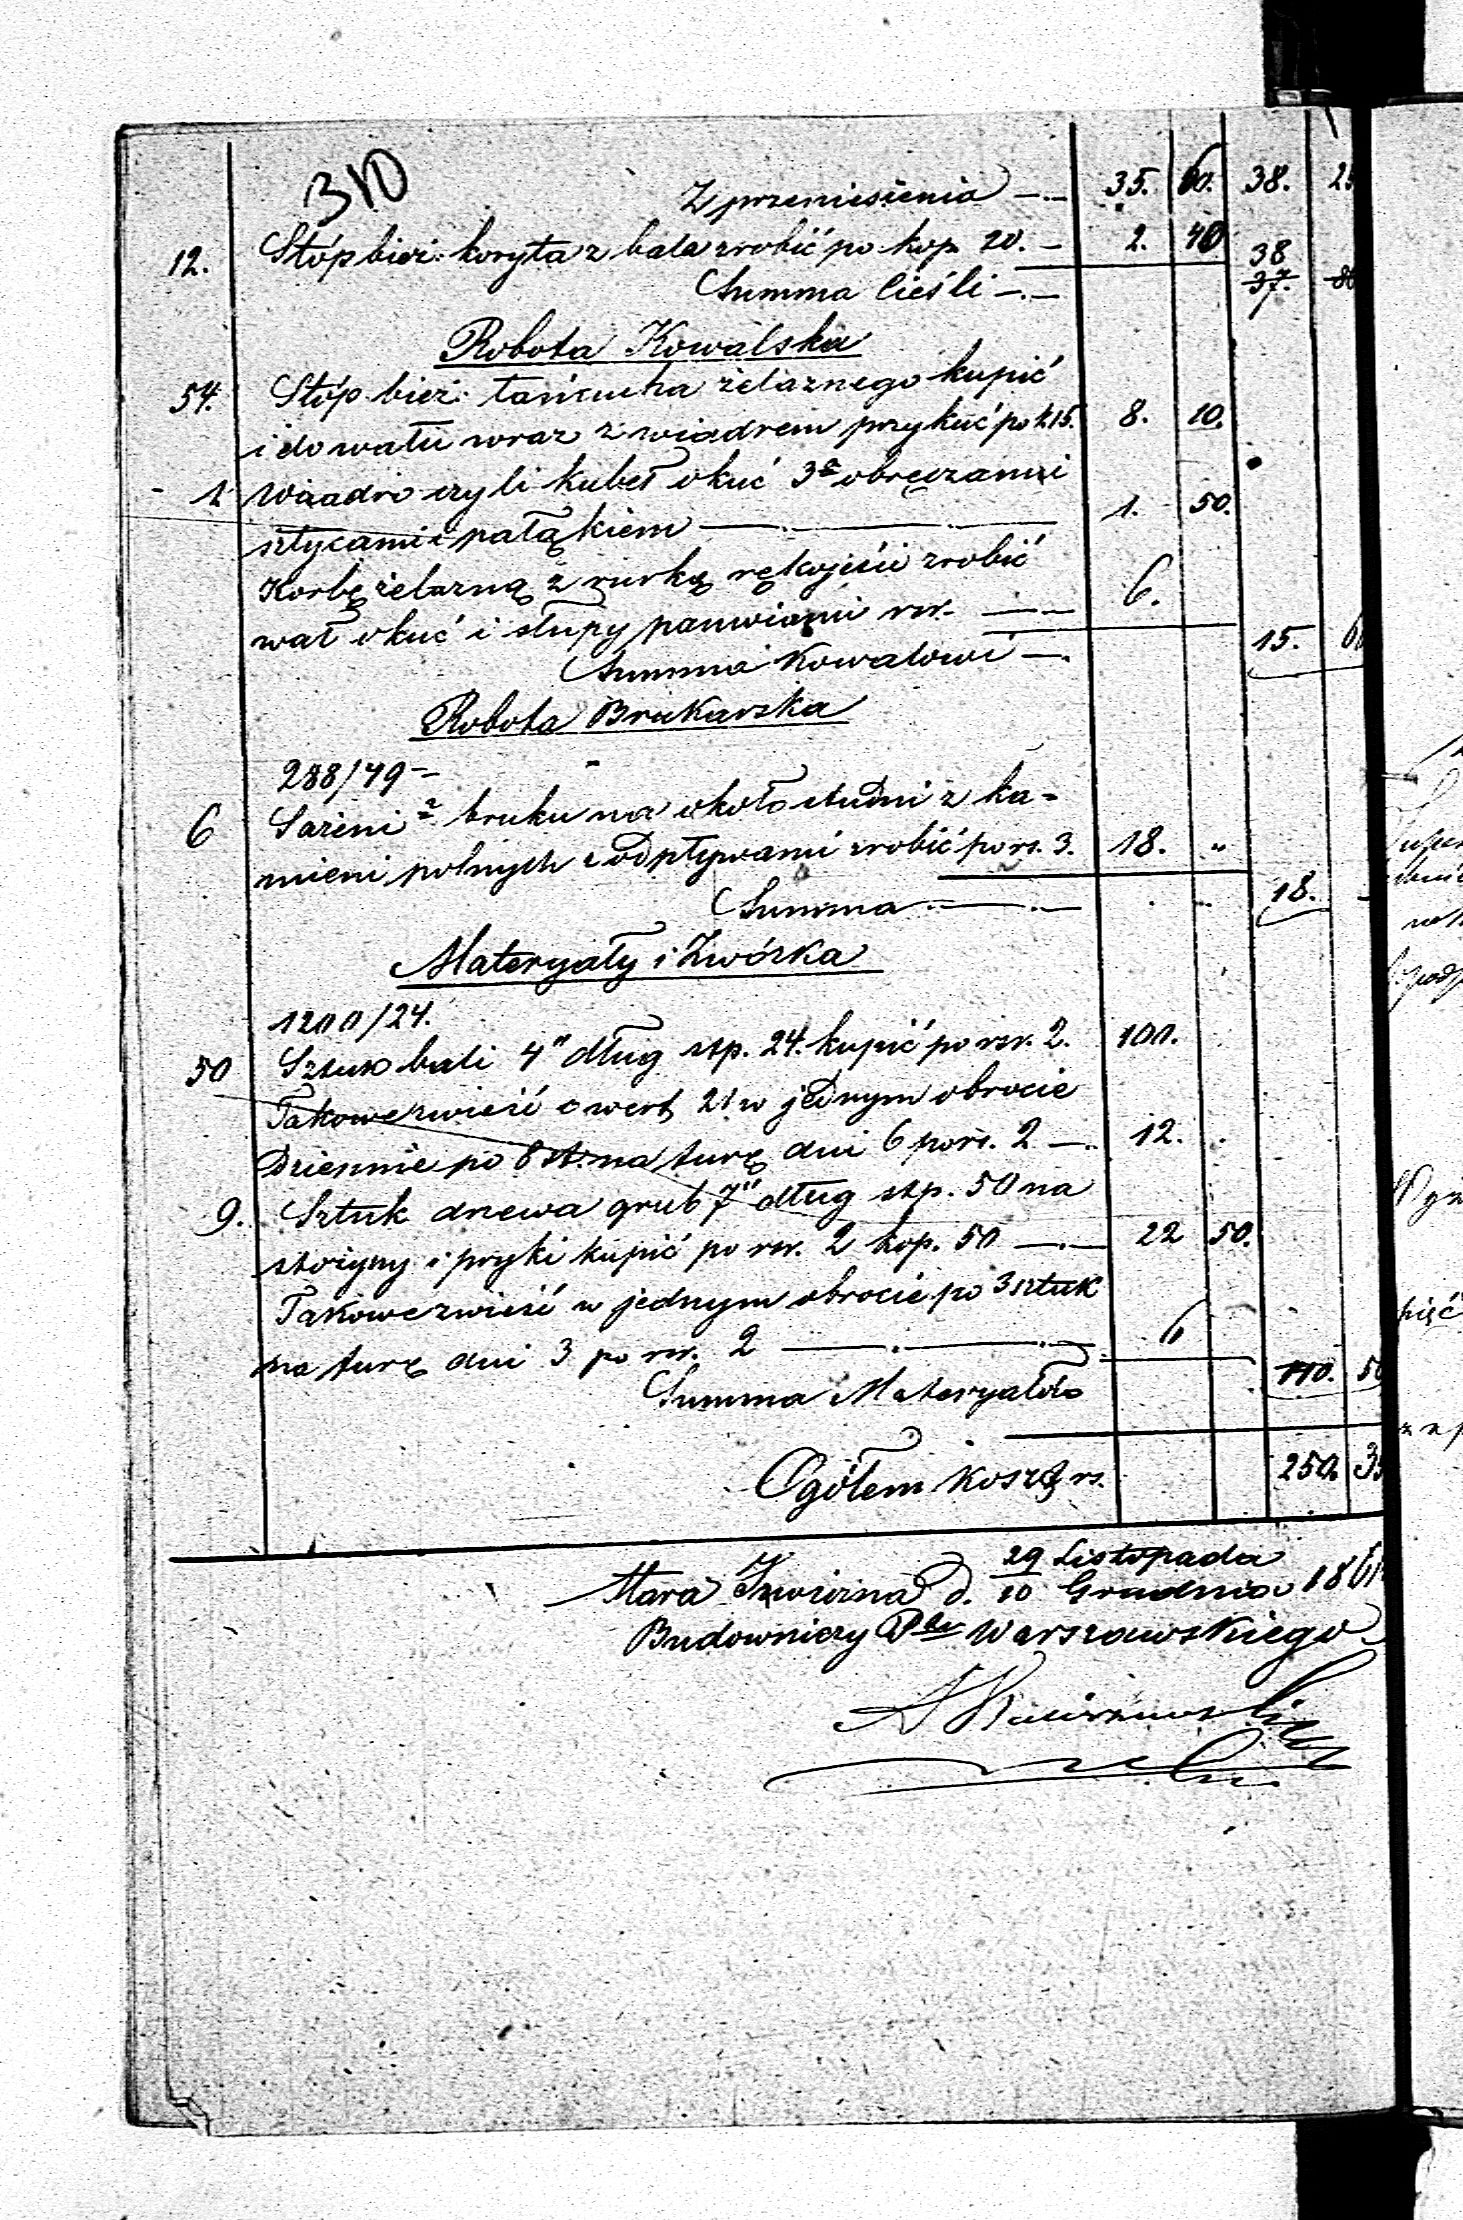 310
Z przeniesienia — 35. 60. 38. 25
12. Stóp bież: koryta z bala zrobić po kop. 20. — 2. 40 38
Summa Cieśli — 37.
Robota Kowalska
54. Stóp bież: łańcucha żelaznego kupić
i do wału wraz z wiadrem przykuć po k 15. 8. 10.
1 Wiadro czyli kubeł okuć 3a obręczami
sztycami i pałąkiem — 1. 50.
Korbę żelazną z rurką rękojeści zrobić
wał okuć i słupy panwiami rsr. — 6.
Summa Kowalowi — 15. 60
Robota Brukarska
288/49 —
6 Sążeni 2 bruku na około studni z ka=
mieni polnych z odpływami zrobić po rs. 3. 18. "
Summa — 18. —
Materyały i Zwózka
1200/24.
50 Sztuk bali 4" dług stp. 24. kupić po rsr. 2. 100.
Takowe zwieść o werst 21 w jednym obrocie
Dziennie po 8 st. na furę dni 6 po rs. 2 — 12.
9. Sztuk drzewa grub 7" dług stp. 50 na
storżyny i pryki kupić po rsr. 2 kop. 50 — 22 50.
Takowe zwieść w jednym obrocie po 3 sztuk
na furę dni 3 po rsr. 2 — 6
Summa Materyałów 140. 50
Ogółem koszt rs. 250. 35
Stara d. 29 Listopada
10 Grudnia 186
Budowniczy Ptu Warszawskiego